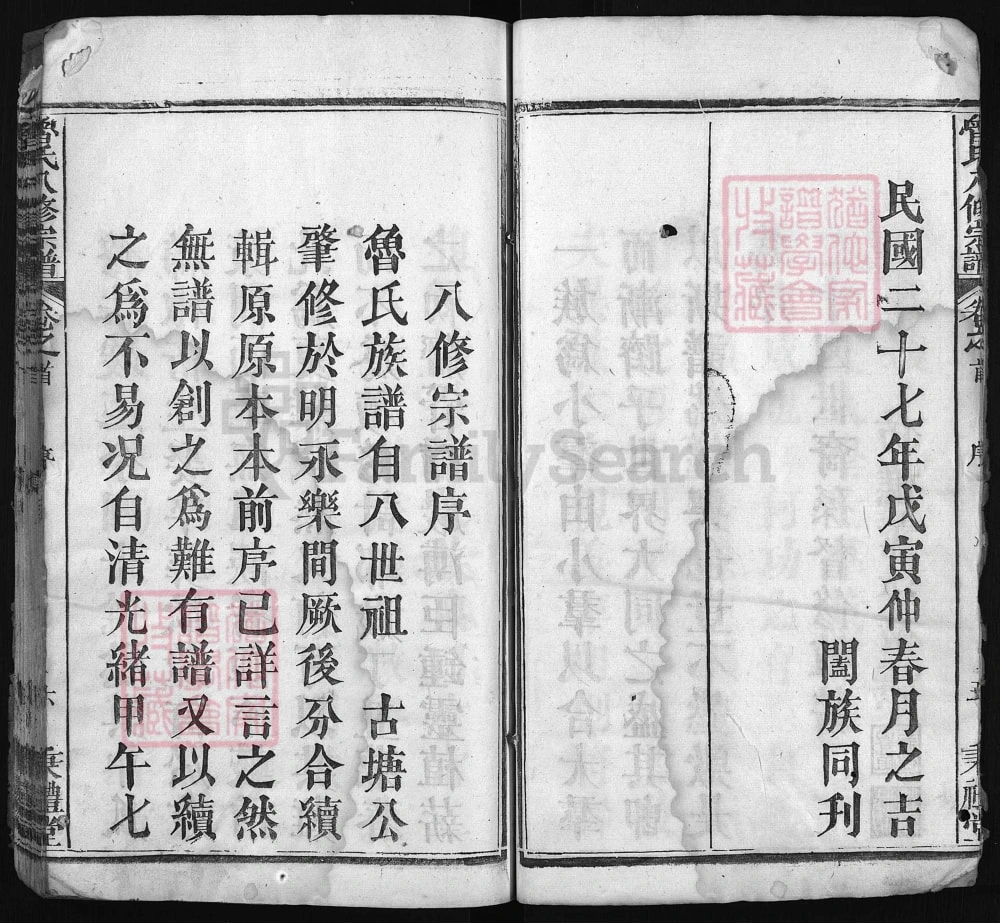 民國二十七年戊寅仲春月之吉
闔族同刋
八修宗譜序
魯氏族譜自八世祖　古塘公
肇修於明永樂間厥後分合續
輯原原本本前序已詳言之然
無譜以創之爲難有譜又以續
之爲不易况自清光緒甲午七
魯氏八修宗譜
卷之首
序
六
秉禮堂
FamilySearch